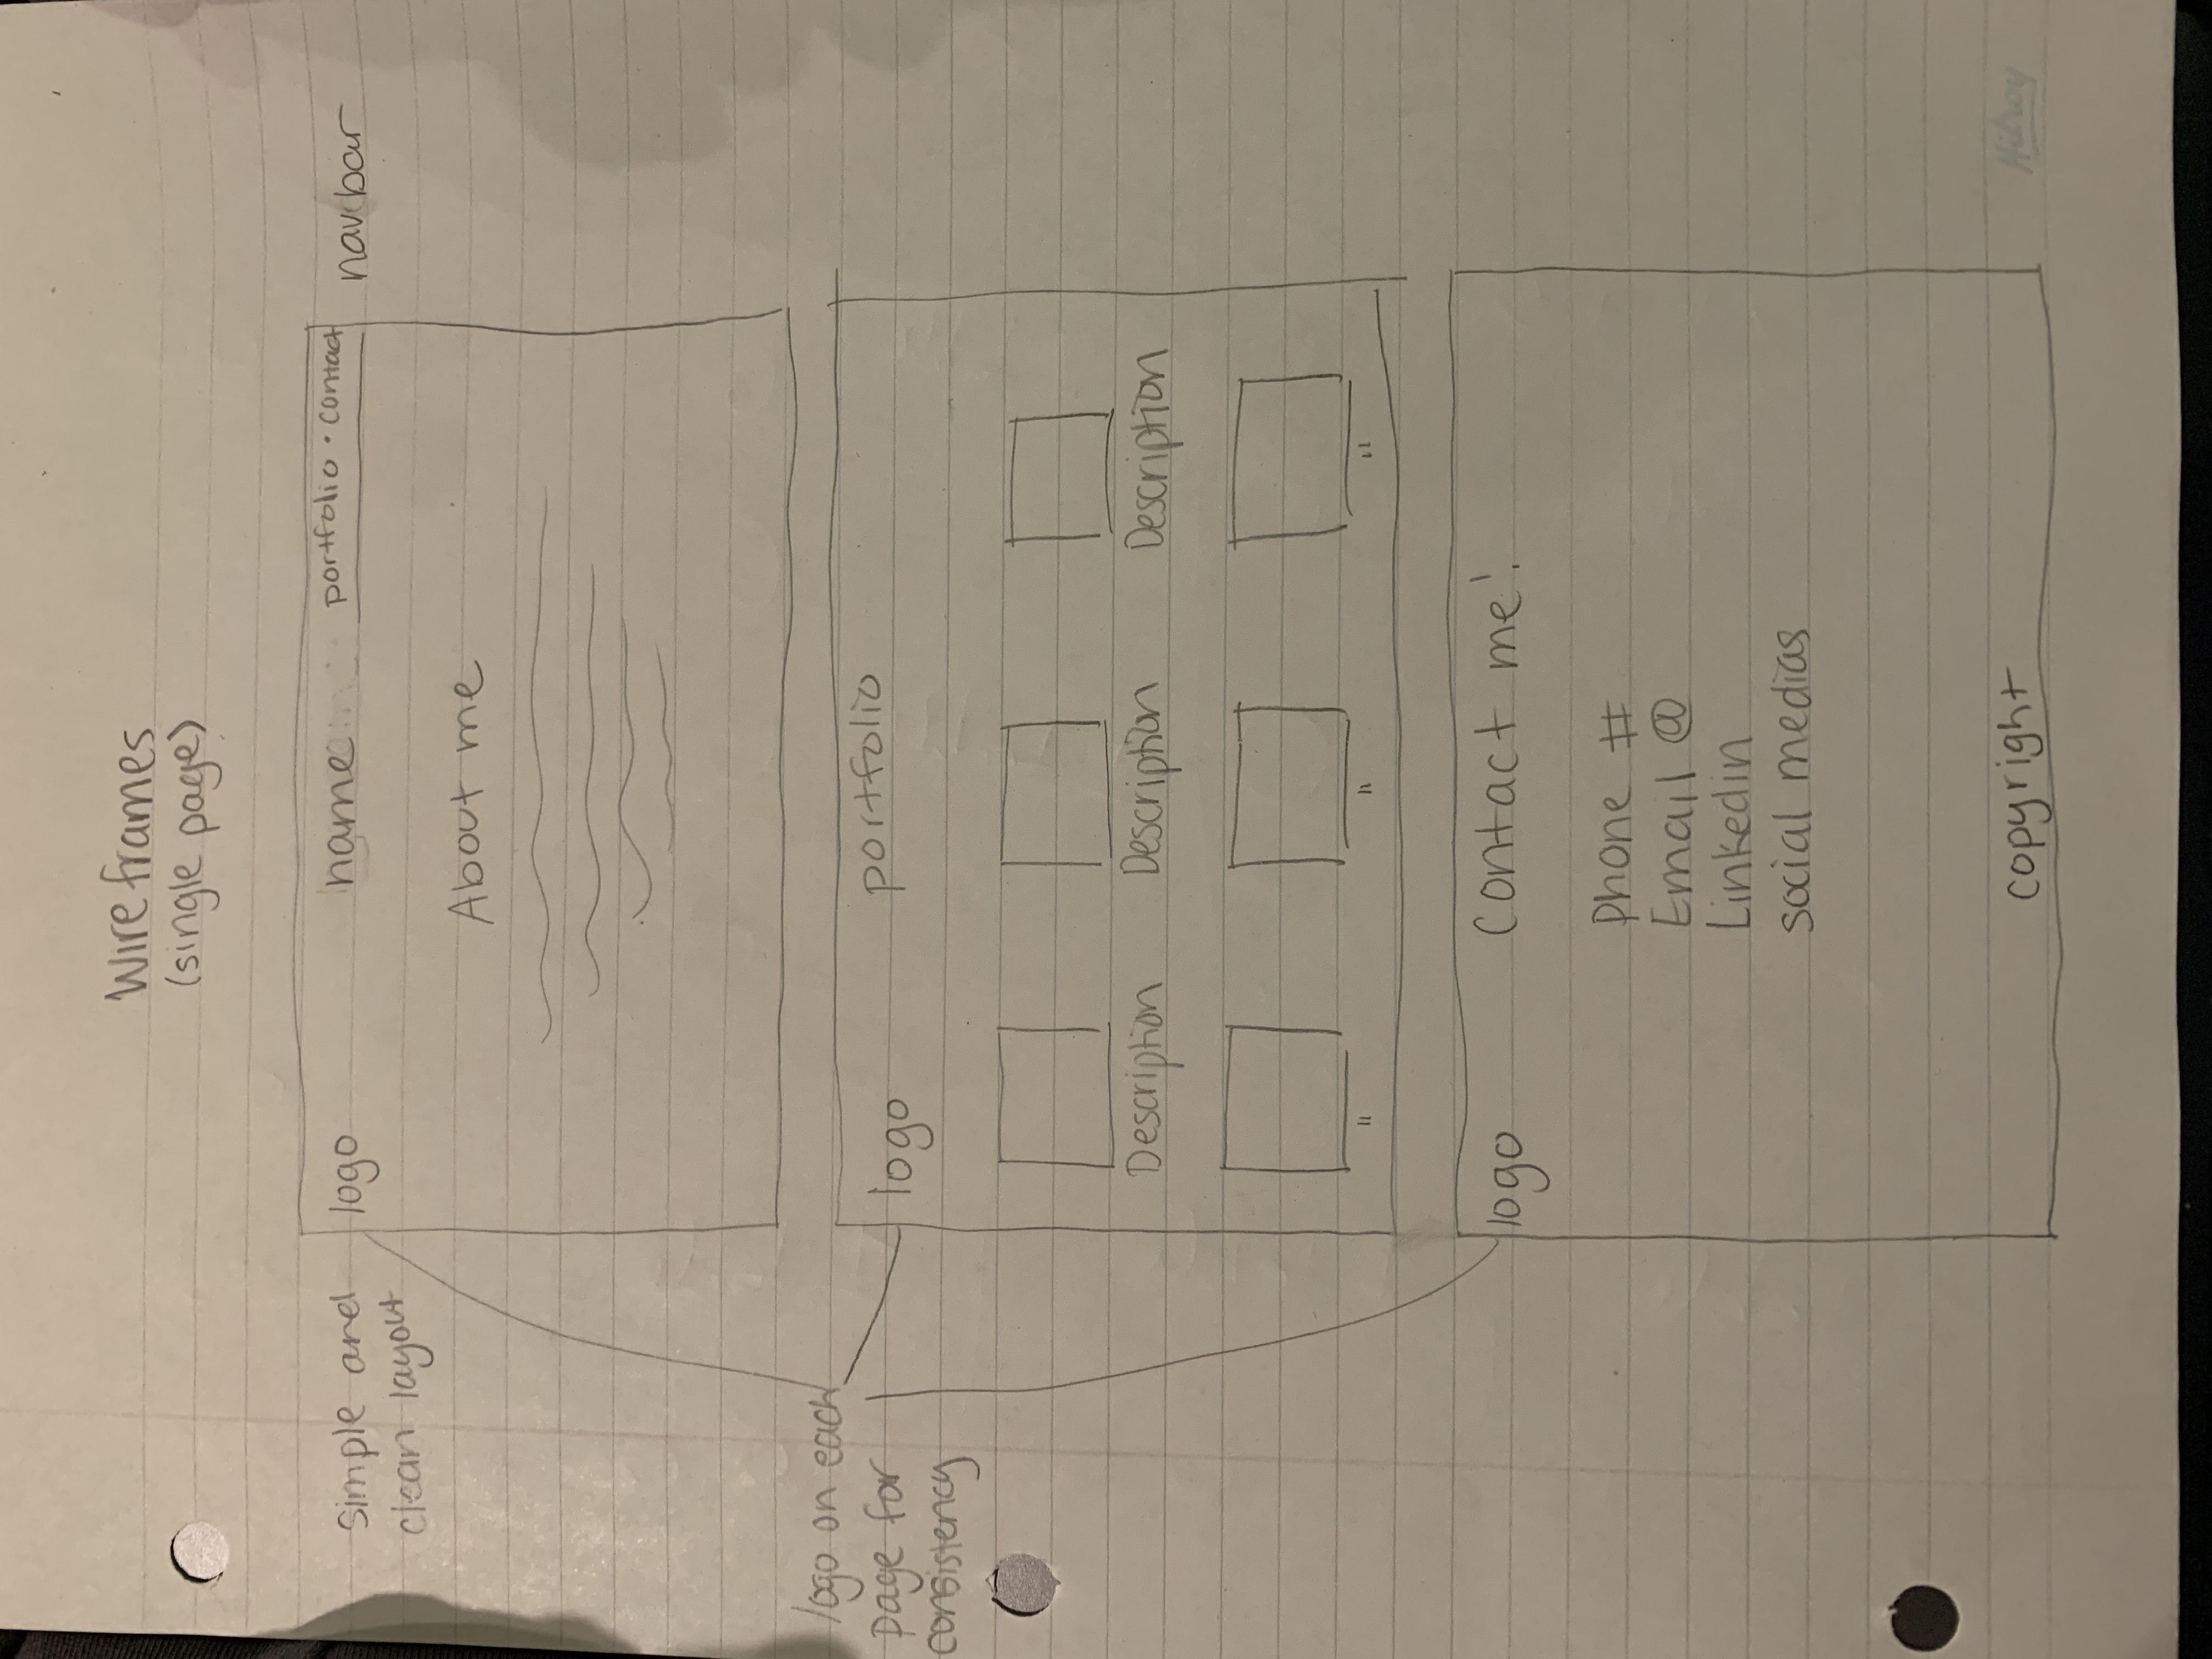 Wireframes
(single page)
simple and
clean layout
logo
name
portfolio • contact
nav bar
About me
logo on each
page for
consistency
logo
portfolio
Description
Description
Description
"
"
"
logo
Contact me!
Phone #
Email @
Linkedin
social medias
copyright
Hilroy